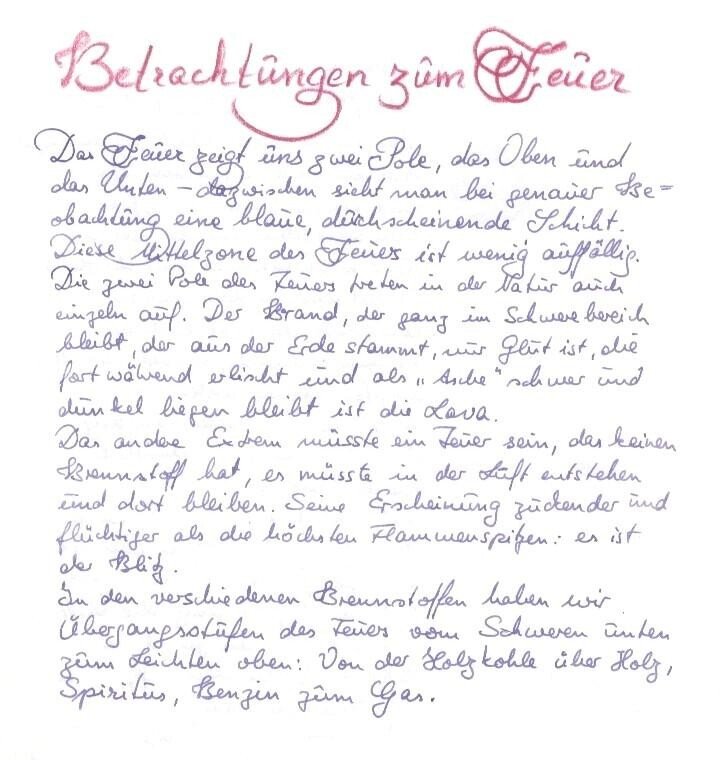 Betrachtungen zum Feuer
Das Feuer zeigt uns zwei Pole, das Oben und
das Unten – dazwischen sieht man bei genauer Be=
obachtung eine blaue, durchscheinende Schicht.
Diese Mittelzone des Feuers ist wenig auffällig.
Die zwei Pole des Feuers treten in der Natur auch
einzeln auf. Der Brand, der ganz im Schwerebereich
bleibt, der aus der Erde stammt, nur Glut ist, die
fortwährend erlischt und als „Asche" schwer und
dunkel liegen bleibt ist die Lava.
Das andere Extrem müsste ein Feuer sein, das keinen
Brennstoff hat, es müsste in der Luft entstehen
und dort bleiben. Seine Erscheinung zuckender und
flüchtiger als die höchsten Flammenspitzen: es ist
der Blitz.
In den verschiedenen Brennstoffen haben wir
Übergangsstufen des Feuers vom Schweren unten
zum Leichten oben: Von der Holzkohle über Holz,
Spiritus, Benzin zum Gas.